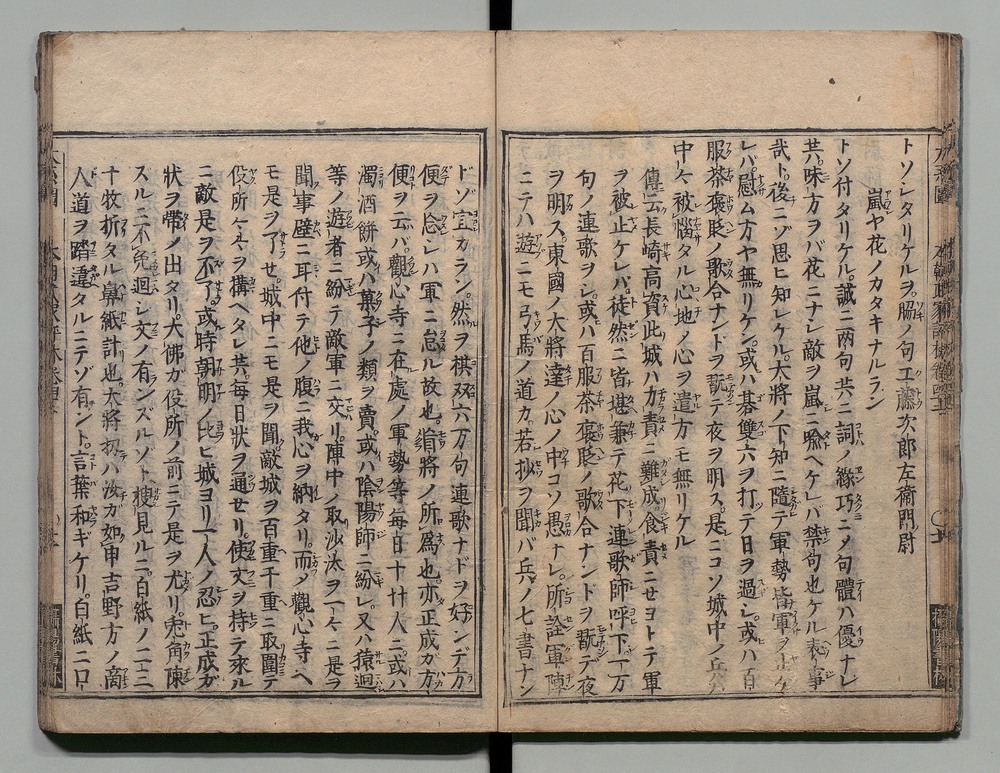 トソシタリケルヲ脇ノ句工藤次郎左衞門尉
嵐ヤ花ノカタキナルラン
トソ付タリケル。誠ニ兩句共ニ詞ノ縁巧ニメ句體ハ優ナレ
共。味方ヲバ花ニナレ敵ヲ嵐ニ喩ヘケレバ禁句也ケル表事
哉ト。後ニゾ思ヒ知レケル。大將ノ下知ニ隨テ軍勢皆軍ヲ止ケ
レバ。慰ム方ヤ無リケン。或ハ碁雙六ヲ打テ日ヲ過シ。或ハ百
服茶褒貶ノ歌合ナンドヲ翫テ夜ヲ明ス。是ニコソ城中ノ兵
中ケ被惱タル心地ノ心ヲ遣方モ無リケル
傳云長崎高資此城ハ力責ニ難成。食責ニセヨトテ軍
ヲ被止ケレバ。徒然ニ皆堪兼テ花下連歌師呼下一万
句ノ連歌ヲシ。或ハ百服茶褒貶ノ歌合ナンドヲ翫テ夜
ヲ明ス。東國ノ大將達ノ心ノ中コソ愚ナレ。所詮軍陣
ニテハ遊ニモ弓馬ノ道カ。若抄ヲ聞バ兵ノ七書ナン
ドゾ宜カラン。然ヲ棋双六万句連歌ナドヲ好ンデ万
便ヲ念シハ軍ニ怠ル故也。
將ノ所爲也。亦正成ガ方ヘ
便ヲ云バ。觀心寺ニ在處ノ軍勢等毎日十廿人ニ。或ハ
濁酒餅或ハ菓子ノ類ヲ賣。或ハ陰陽師ニ紛レ。又ハ猿廻
等ノ遊者ニ紛テ敵軍ニ交リ。陣中ノ取沙汰ヲ一々ニ是ヲ
聞。事壁ニ耳付テ他ノ腹ニ我心ヲ納タリ。而メ觀心寺ヘ
モ是ヲ了セ。城中ニモ是ヲ聞。敵城ヲ百重千重ニ取圍テ
役所ヲ構ヘタレ共。毎日狀ヲ通セリ。使文ヲ持テ來ル
ニ敵是ヲ不了。或時朝明ノ比ヒ城ヨリ一人ノ忍ヒ。正成ガ
狀ヲ帶ノ出タリ。大佛ガ役所ノ前ニテ是ヲ尤リ。兎角陳
スルニ不免廻シ文ノ有ンズルゾト搜見ルニ。白紙ノ二三
十牧折タル鼻紙計也。大將扨ハ汝ガ如申吉野方ノ商
人道ヲ踏違タルニテゾ有ント。言葉和ギケリ。白紙ニロ